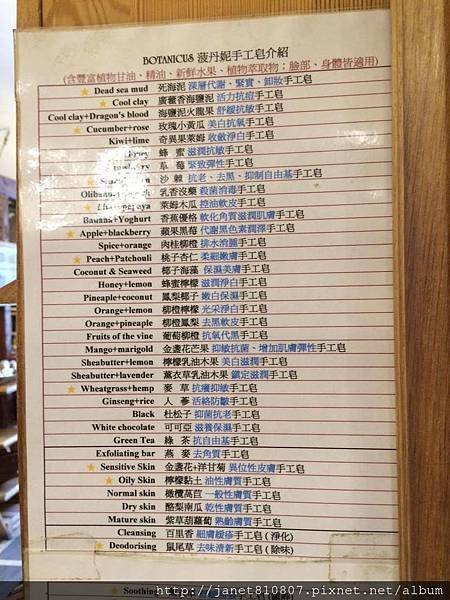 BOTANICUS 菠丹妮手工皂介紹
(含豐富植物甘油、精油、新鮮水果、植物萃取物;臉部、身體皆適用)
★ Dead sea mud 死海泥 深層代謝、緊實、卸妝手工皂
★ Cool clay 廣藿香海鹽泥 活力抗痘手工皂
Cool clay+Dragon's blood 海鹽泥火龍果 舒緩抗敏手工皂
★ Cucumber+rose 玫瑰小黃瓜 美白抗氧手工皂
Kiwi+lime 奇異果萊姆 收斂淨白手工皂
蜂 蜜 滋潤抗敏手工皂
草 莓 緊致彈性手工皂
沙 棘 抗老、去黑、抑制自由基手工皂
乳香沒藥 殺菌消毒手工皂
★ 萊姆木瓜 控油軟皮手工皂
Banana+Yoghurt 香蕉優格 軟化角質滋潤肌膚手工皂
★ Apple+blackberry 蘋果黑莓 代謝黑色素潤澤手工皂
Spice+orange 肉桂柳橙 排水消腫手工皂
★ Peach+Patchouli 桃子杏仁 柔細嫩膚手工皂
Coconut & Seaweed 椰子海藻 保濕美膚手工皂
Honey+lemon 蜂蜜檸檬 滋潤淨白手工皂
Pineapple+coconut 鳳梨椰子 嫩白保濕手工皂
Orange+lemon 柳橙檸檬 光采淨白手工皂
Orange+pineaple 柳橙鳳梨 去黑軟皮手工皂
Fruits of the vine 葡萄柳橙 抗氧代黑手工皂
Mango+marigold 金盞花芒果 抑敏抗菌、增加肌膚彈性手工皂
Sheabutter+lemon 檸檬乳油木果 美白滋潤手工皂
Sheabutter+lavender 薰衣草乳油木果 鎮定滋潤手工皂
★ Wheatgrass+hemp 麥 草 抗癢抑敏手工皂
Ginseng+rice 人 蔘 活絡防皺手工皂
Black 杜松子 抑菌抗老手工皂
White chocolate 可可亞 滋養保濕手工皂
Green Tea 綠 茶 抗自由基手工皂
Exfoliating bar 燕 麥 去角質手工皂
★ Sensitive Skin 金盞花+洋甘菊 異位性皮膚手工皂
★ Oily Skin 檸檬黏土 油性膚質手工皂
Normal skin 橄欖萵苣 一般性膚質手工皂
Dry skin 酪梨南瓜 乾性膚質手工皂
Mature skin 紫草胡蘿蔔 熟齡膚質手工皂
Cleansing 百里香 細膚緩疹手工皂 (淨化)
★ Deodorising 鼠尾草 去味清新手工皂 (除味)
Soothing
http://janet810807.pixnet.net/album